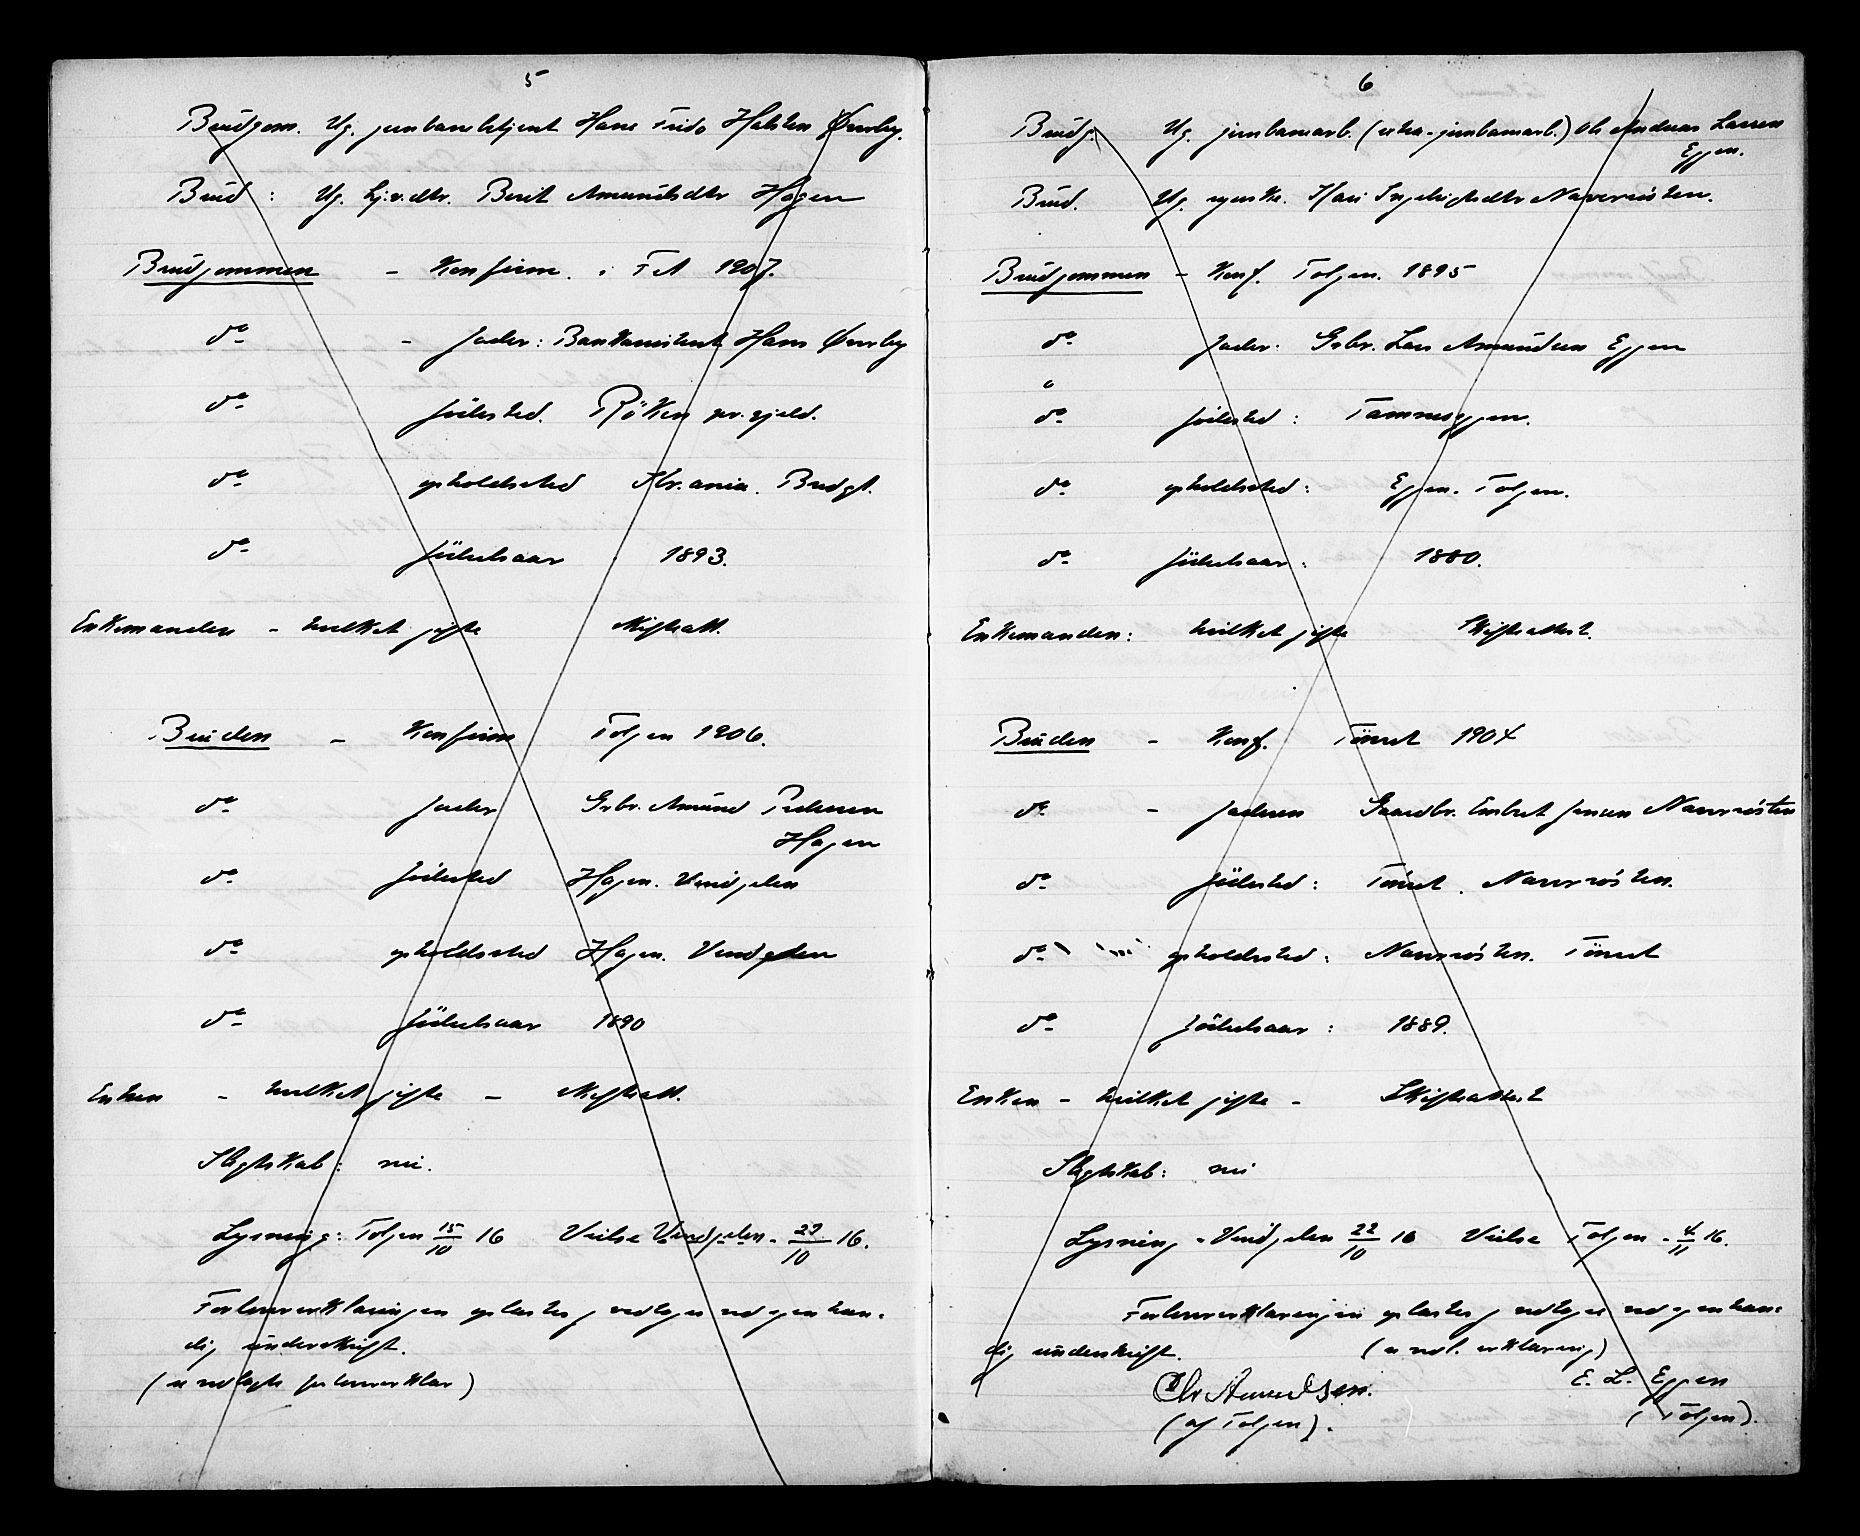 5
Brudgom. Ug. jernbanebetjent Hans Frido Halsten Ørnby.
Brud : Ug. hj.v.dtr. Berit Amundsdtr Hagen
Brudgommen - Konfirm. i Fet 1907.
do - fader: Bankassistent Hans Ørnby
do fødested. Röken pr.gjeld.
do opholdssted Kr.ania. Brudgt.
do födselsaar : 1893.
Enkemanden - hvilket gifte skifteatt.
Bruden - Konfirm Tolgen 1906.
do fader Grbr. Amund Pedersen
Hagen
do födested Hagen. Vingelen
do opholdssted Hagen. Vingelen
do födselsaar 1890
Enken - hvilket gifte - skifteatt.
Slegtskab: nei.
Lysning: Tolgen 15/10 16 Vielse Vingelen - 29/10 16.
Forlovererklaringen oplastes & vedtages ved egenhæn-
dig underskrift.
(se vedlagte forlovererklær)
6
Brudg. Ug. jernbanearb. (extra-jernbanearb.) Ole Andreas Larsen
Eggen.
Brud. Ug. Kari Ingebrigtsdtr Naverrösten.
Brudgommen - Konf. Tolgen. 1895
do fader: Grbr. Lars Amundsen Eggen
do födested : Tamneseggen.
do opholdssted : Eggen. Tolgen.
do födselsaar : 1880.
Enkemanden: hvilket gifte Skifteattest.
Bruden - Konf. Tönset 1904
do - faderen Gaardbr. Embret Jensen Naverrösten
do födested : Tönset. Naverrösten.
do opholdssted : Naverrösten. Tönset
do födselsaar : 1889.
Enken - hvilket gifte - Skifteattest
Slegtskab: nei
Lysning - Vingelen 22/10 16 Vielse Tolgen - 4/11 16.
Forlovererklaringen oplastes & vedtages ved egenhæn-
dig underskrift. (se vedl. erklæring)
Chr Amundsen. E. L. Eggen
(af Tolgen). (Tolgen).